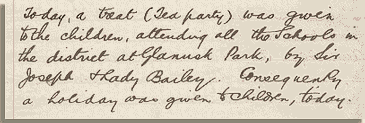 Today, a treat (Tea party) was given
to the children, attending all the Schools in
the district at Glanusk Park, by Sir
Joseph & Lady Bailey. Consequently
a holiday was given to children, today.